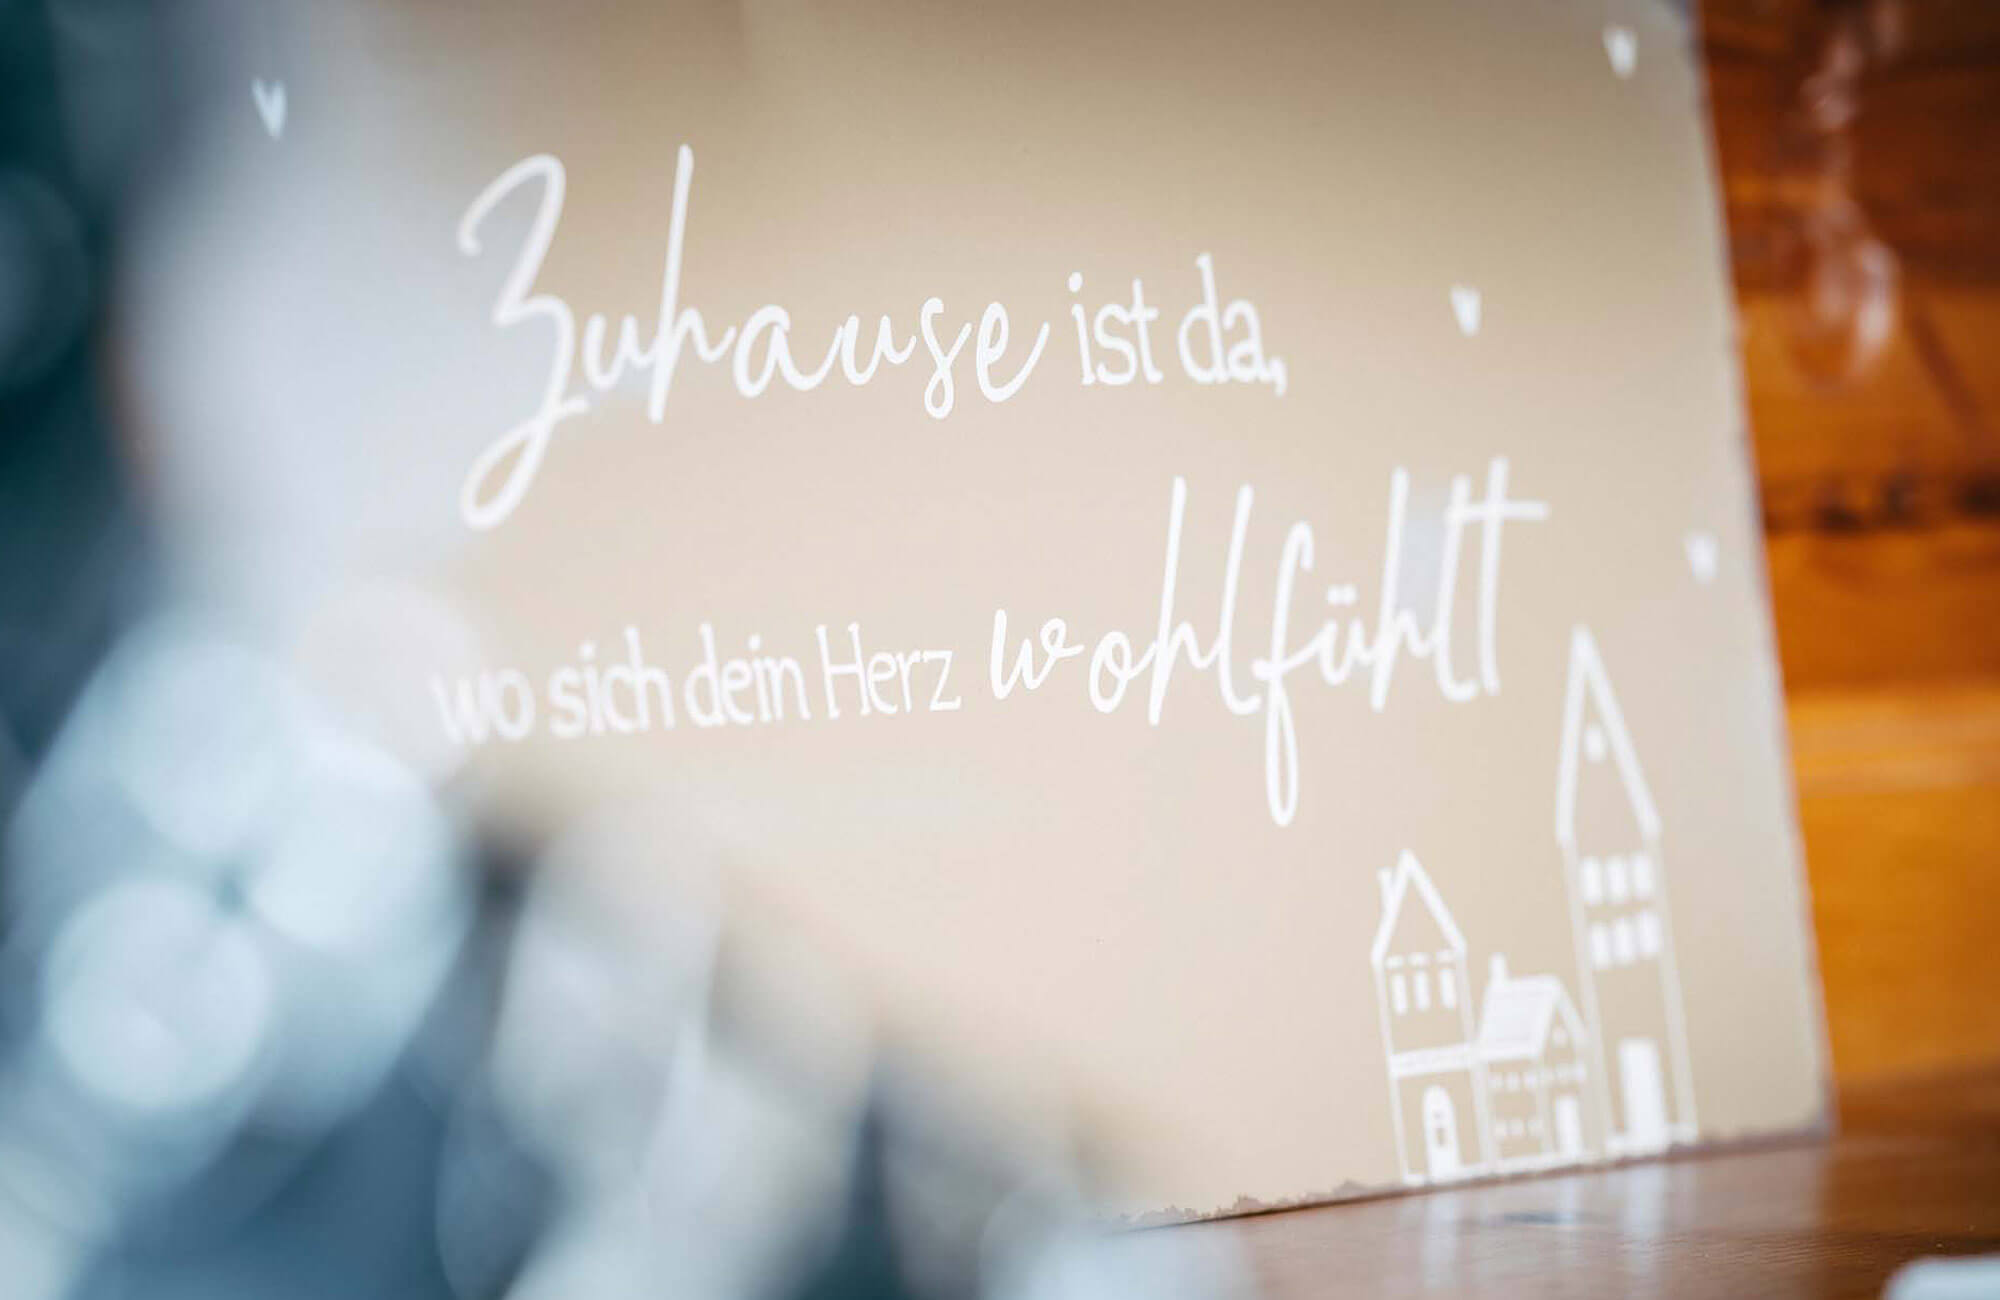 Zuhause ist da,
wo sich dein Herz wohlfühlt